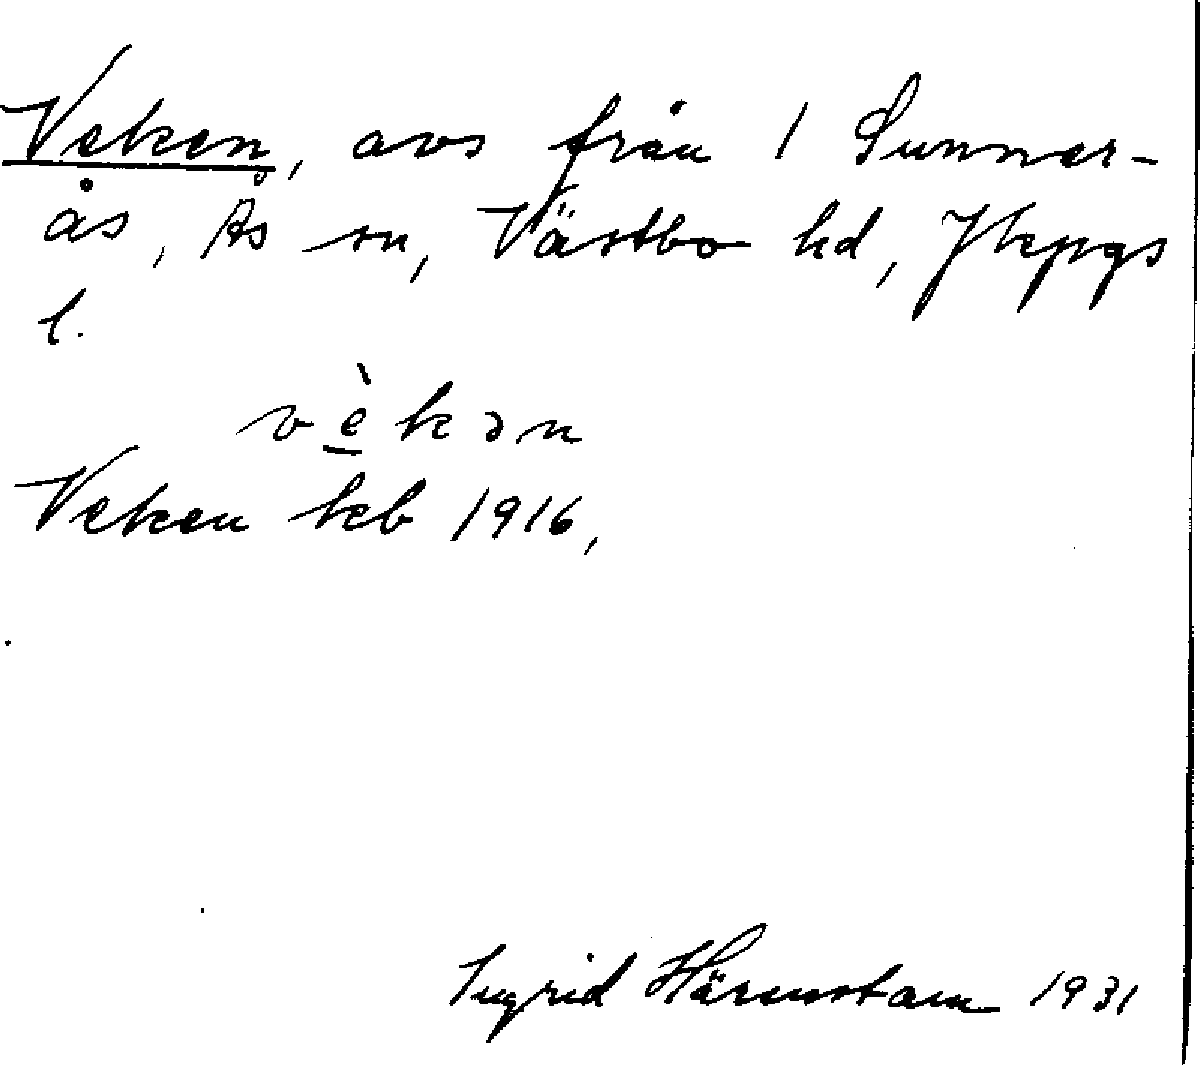 Veken, avs från 1 Sunner-
ås, Ås sn, Västbo hd, Jkpgs
l.
vè̠kən
Veken kb 1916,
Ingrid Härenstam 1931